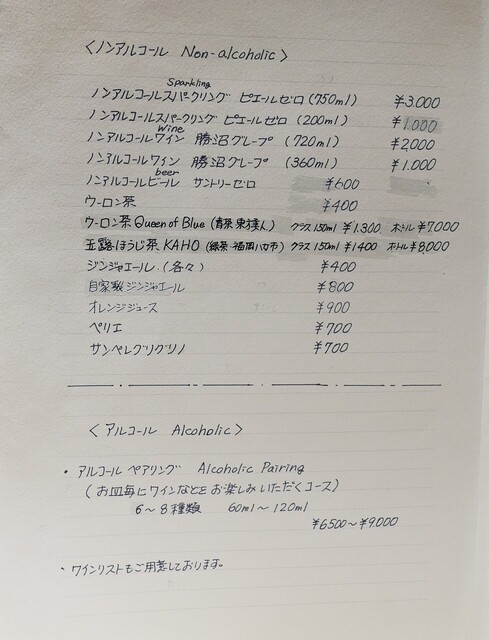 〈ノンアルコール Non-alcoholic〉
Sparkling
ノンアルコールスパークリング ピエールゼロ (750ml) ¥3.000
ノンアルコールスパークリング ピエールゼロ (200ml) ¥1.000
wine
ノンアルコールワイン 勝沼グレープ (720ml) ¥2,000
ノンアルコールワイン 勝沼グレープ (360ml) ¥1.000
beer
ノンアルコールビール サントリーゼロ ¥600
ウーロン茶 ¥400
ウーロン茶 Queen of Blue (青茶 東方美人) グラス150ml ¥1.300 ボトル ¥7000
玉露ほうじ茶 KAHO (緑茶・福岡八女市) グラス150ml ¥1400 ボトル ¥8,000
ジンジャエール.(各々) ¥400
自家製ジンジャエール ¥800
オレンジジュース ¥900
ペリエ ¥700
サンペレグリグリノ ¥700
〈アルコール Alcoholic〉
・アルコール ペアリング Alcoholic Pairing
(お皿毎にワインなどをお楽しみいただくコース)
6〜8種類 60ml〜120ml
¥6500〜¥9.000
・ワインリストもご用意しております。